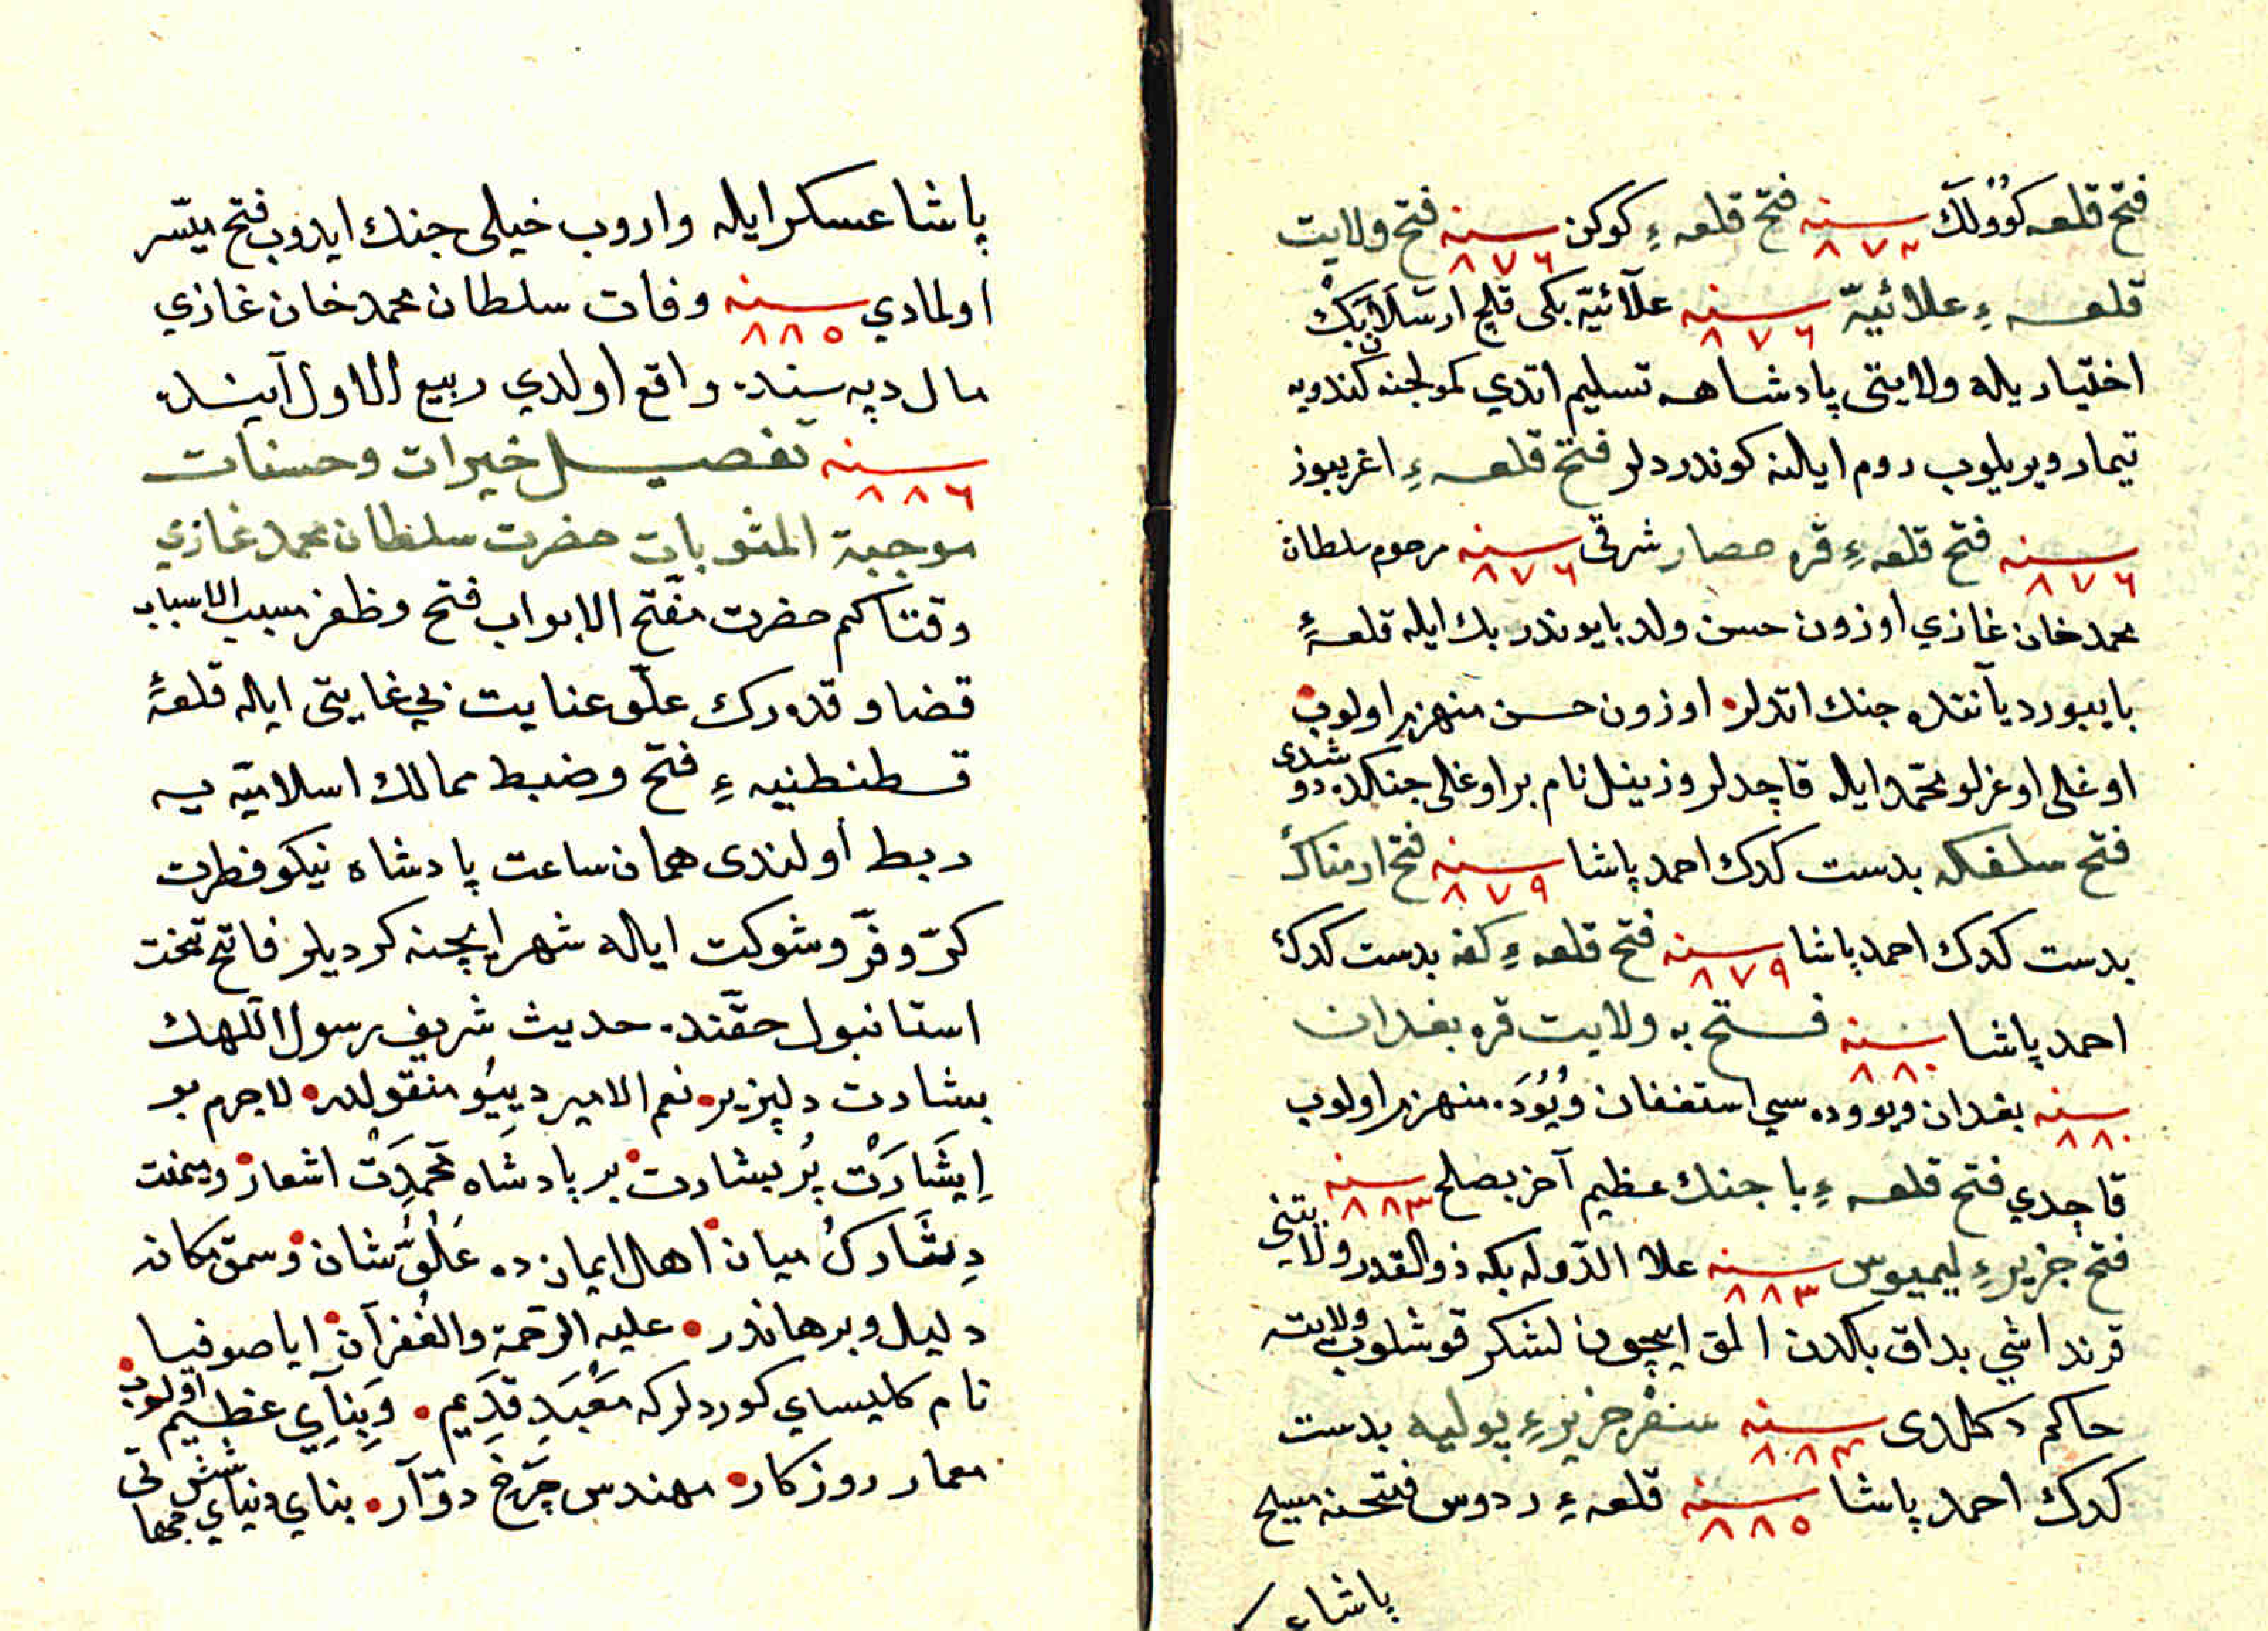 فتح قلعه كوولك سنه ٨٧٢ فتح قلعهء كوكن سنه ٨٧٦ فتح ولايت
قلعهء علائيّه سنه ٨٧٦ علآئيّه بكى قلج ارسلان بك
اختيار يله ولايتى پادشاهه تسليم اتدي كمولجنه كندويه
تيمار ويريلوب روم ايالنه كوندرديلر فتح قلعهء اغريبوز
سنه ٨٧٦ فتح قلعهء قره حصار شرقى سنه ٨٧٦ مرحوم سلطان
محمد خان غازي اوزون حسن ولد بايوندر بك ايله قلعهٔ
بايبورد يآننده جنك اتديلر اوزون حسن منهزم اولوب
اوغلى اوغرلو محمّد ايله قاچديلر وزينل نام بر اوغلى جنكده دوشدى
فتح سلفكه بدست كدك احمد پاشا سنه ٨٧٩ فتح ارمناك
بدست كدك احمد پاشا سنه ٨٧٩ فتح قلعهء كفه بدست كدك
احمد پاشا سنه ٨٨٠ فتح به ولايت قره بغدان
سنه ٨٨٠ بغدان ويووده سي استفان ويوده منهزم اولوب
قاچدي فتح قلعهء با جنك عظيم آخر بصلح سنه ٨٨٣
فتح جزيرهء ليميوس سنه ٨٨٣ علا الدّوله بكه ذوالقدر ولايتنى
قرنداشي بداق بكدن المق ايچون لشكر قوشلوب ولايته
حاكم دكلدى سنه ٨٨٤ سفر جزيرهء پوليه بدست
كدك احمد پاشا سنه ٨٨٥ قلعهء ردوس فتحنه مسيح
پاشا
پاشا عسكر ايله واروب خيلى جنك ايدوب فتح ميّسر
اولمادي سنه ٨٨٥ وفات سلطان محمد خان غازي
مال دپه سنده واقع اولدي ربيع الاول آينده
سنه ٨٨٦ تفصيل خيرات وحسنات
موجبة المثوبات حضرت سلطان محمد غازي
وقتاكم حضرت مفتّح الابواب فتح وظفر مسبب الاسباب
قضا وقدرك علّو عنايت بي غايتى ايله قلعهٔ
قسطنطنيهء فتح وضبط ممالك اسلاميّه يه
ربط اولندى همان ساعت پادشاه نيكو فطرت
كرّ وفرّ وشوكت ايله شهر ايچنه كرديلر فاتح تخت
استانبول حقّنده حديث شريف رسول اللهك
بشارت دلپزير نعم الامير دييو منقولدر لاجرم بو
اِيشَارَتْ پُر بشارت بر پادشاه محمدت اشعار وميمنت
دِثَارك ميان اهل ايمان ده عُلُوّ شان وسموّ مكانه
دليل وبرهاندر عليه الرّحمة والغُفرآن اياصوفيا
نام كليساي كورديلر كه مَعْبَدِ قَدِيم وَبِنآيِ عظيم اولوب
معمار روزكار مهندس چَرْخِ دوّآر بناي دنياي شش جهاتى